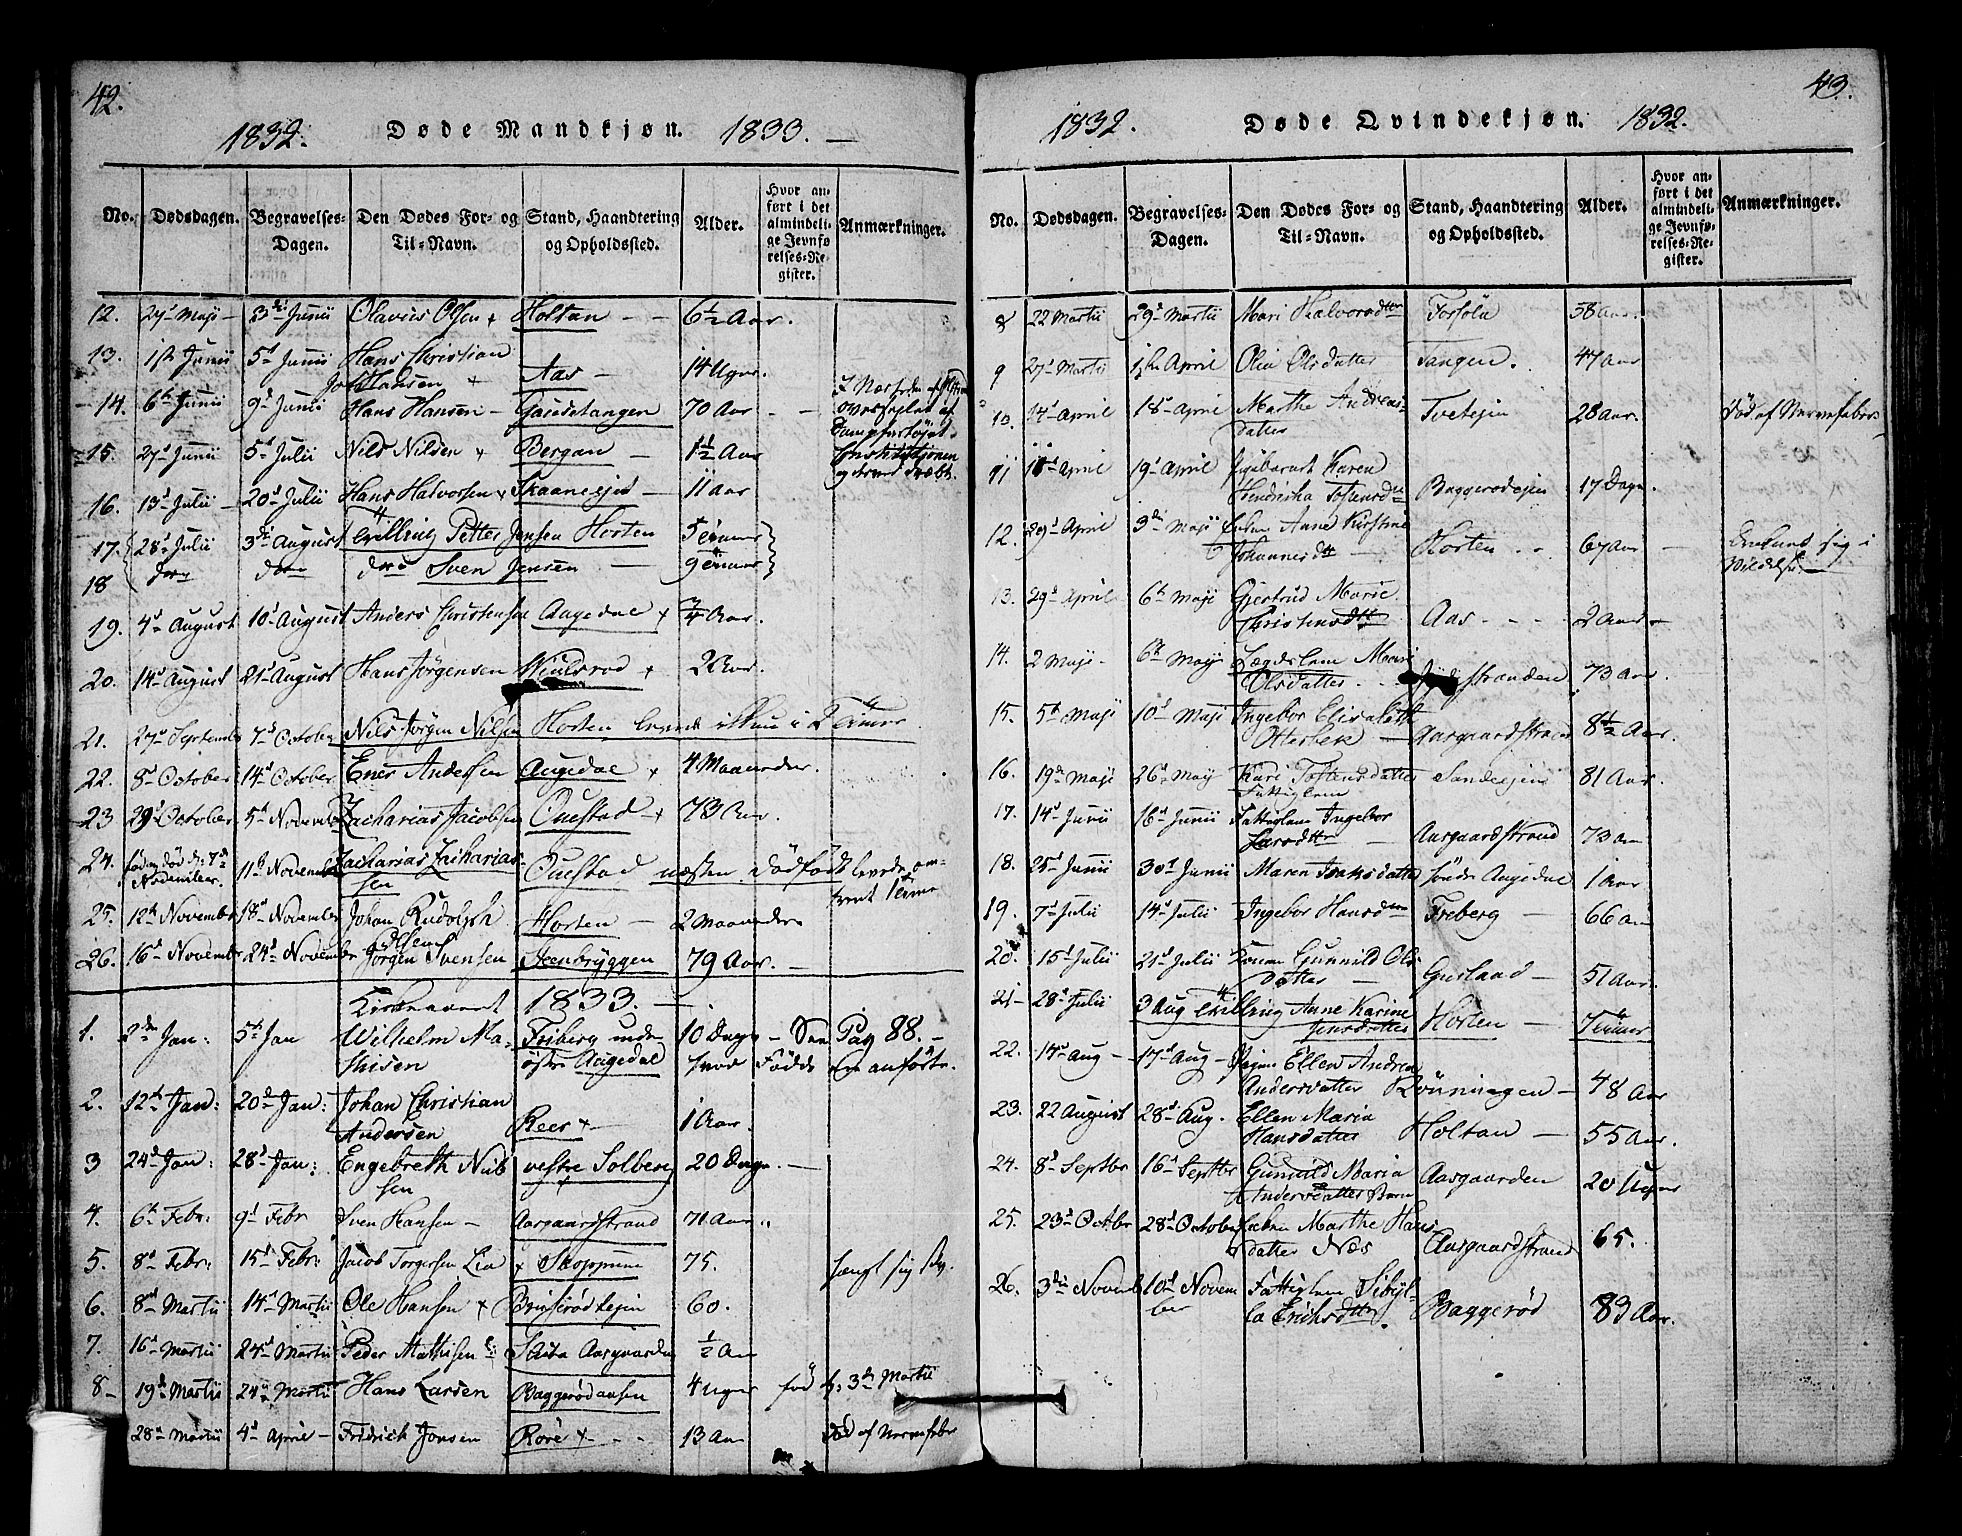 42.
1832. Døde Mandkjøn. 1833.
No. Dødsdagen. Begravelses-Dagen. Den Dødes For- og Til-Navn. Stand, Haandtering og Opholdssted. Alder. Hvor anført i det almindelige Jevnførelses-Register. Anmærkninger.
12. 27d Maji 3di Junii Olavus Olsen Holtan 6½ Aar.
13. 1ste Junii 5d Junii Hans Christian
Hansen Aas 14 Uger.
14. 6te Junii 9d Junii Hans Hansen Gaasetangen 70 Aar
15. 27d Junii 5d Julii Nils Nilsen Bergan 1½ Aar
16. 13d Julii 20d Julii Hans Halvorsen Skaaneejer 11 Aar
17. 28d Julii 3di August Tvilling Petter Jensen Horten 5 Timer
18 do do do Sven Jensen 9 Timer
19. 4d August 10d August Anders Christensen Augedal ¾ Aar.
20. 14d August 21d August Hans Jørgensen Wiulsrod 2 Aar.
21. 27d September 7d October Nils Jørgen Nilsen Horten i 2 Timer
22. 8d October 14d October Ener Andersen Augedal 4 Maaneder.
23 29d October 5d November Zacharias Jacobsen Ouestad 73 Aar.
24. fød og død d: 7de November 11te November Zacharias Zacharias-
sen Ouestad næsten dødfød levede om-
trent 1 Time
25. 12te November 18d November Johan Rudolph
Olsen Horten 2 Maaneder
26. 16d November 24d November Jørgen Svensen Steenbryggen 79 Aar.
Kirkeaaret 1833.
1. 2den Jan: 5te Jan Wilhelm Ma-
thisen Friberg under
østre Augedal 10 Dage See Pag 88.
hvor Fødde ere anførte.
2. 12te Jan: 20de Jan: Johan Christian
Andersen Rees 1 Aar.
3 24d Jan: 28d Jan: Engebreth Niel-
sen vestre Solberg 20 Dage.
4. 6te Febr: 9d Febr Sven Hansen Aasgaardstrand 71 Aar
5. 8d Febr: 15d Febr: Jacob Torgersen Lia Skoppum 75. hængt sig selv.
6. 8d Martii 14d Martii Ole Hansen Briserød ejer 60.
7. 16d Martii 24d Martii Peder Mathisen Aasgaarden ½ Aar
8 19d Martii 24d Martii Hans Larsen Baggerødaasen 4 Uger fød d: 3di Martii
28d Martii 4d April Fridrich Jansen Røre 13 Aar Død af Nervefeber
43.
1832. Døde Qvindekjøn. 1832.
No. Dødsdagen. Begravelses-Dagen. Den Dødes For- og Til-Navn. Stand, Haandtering og Opholdssted. Alder. Hvor anført i det almindelige Jevnførelses-Register. Anmærkninger.
8 22 Martii 29d Martii Mari Halvorsdtter 58 Aar.
9 27d Martii 1ste April Olia Olsdatter Tangen. 47 Aar
10. 14d April 18d April Marthe Andreas-
datter Tvetejen 28 Aar. Død af Nervefeber
11 11d April 19d April Pigebarnet Karen
Hendricka Baggerødejen 17 Dage.
12. 29d April 3di Maji Enken Anne Kirstine
Johannesdtt Horten 67 Aar
13. 29d April 6te Maji Gjertrud Marie
Christensdtt Aas 2 Aar
14. 2 Maji 6te Maji Lægdslem Mari
Olsdatter stranden 73 Aar.
15. 5te Maji 10d Maji Ingebor Elisabeth
Otterbek Aasgaardstrand 8½ Aar.
16. 19de Maji 26d Maij Kari Tostensdatter
Fattiglem Sandeejen 81 Aar.
17. 14d Junii 16d Junii Fattiglem Ingebor
Larsdtter Aasgaardstrand 73 Aar
18. 25d Junii 30d Junii Maren Isaksdatter søndre Augedal 1 Aar
19. 7d Julii 14d Julii Ingebor Hansdtter Freberg 66 Aar
20. 15d Julii 21d Julii Konen Gunnild Ols
datter Gustaad 51 Aar.
21 28d Julii 3 Aug Tvilling Anne Karine
Jensdatter Horten 7 Timer
22. 14d Aug 17d Aug Pigen Ellen Andrea
Andersdatter Rønningen 48 Aar
23. 22 August 28d Aug. Ellen Maria
Hansdatter Holtan 55 Aar.
24. 8d Septbr 16d Septbr Gunnild Maria
Andersdatter Barn Aasgaarden 20 Uger
25. 23d Octbr 28d October Enken Marthe Hans
datter Næs Aasgaardstrand 65.
26. 3die Novemb 10d Novem
ber Fattiglem Sibyl-
la Erichsdtter. Baggerød 83 Aar.